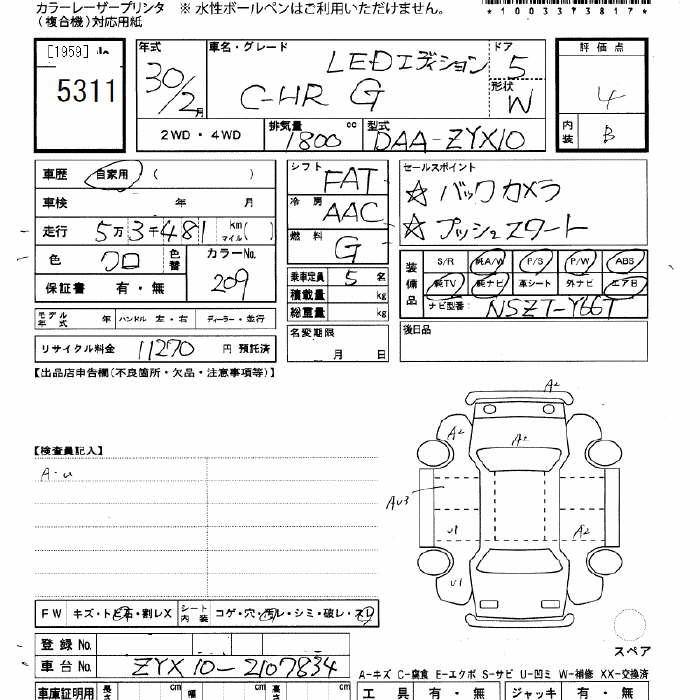 カラーレーザープリンタ ※ 水性ボールペンはご利用いただけません。
(複合機)対応用紙
*1003373817*
[1959]
5311
年式 車名・グレード ドア 評価点
30/2月 C-HR G LEDエディション 5 4
形状 W
2WD・4WD 排気量 1800 cc 型式 DAA-ZYX10 内装 B
車歴 自家用 ( )
車検 年 月
走行 5万3千481 km マイル ( )
色 クロ 色替 カラーNo. 209
保証書 有・無
シフト FAT
冷房 AAC
燃料 G
乗車定員 5 名
積載量 kg
総重量 kg
名変期限 月 日
セールスポイント
☆ バックカメラ
☆ プッシュスタート
装備品 S/R 純A/W P/S P/W ABS
純TV 純ナビ 革シート 外ナビ エアB
ナビ型番: NSZT-Y66T
後日品
モデル年式 年 ハンドル 左・右 ディーラー・並行
リサイクル料金 11270 円 預託済
【出品店申告欄(不良箇所・欠品・注意事項等)】
【検査員記入】
A-u
A2
A2
A2
AU3
U1
A2
U1
FW キズ・トビ石・割レX シート内装 コゲ・穴・汚レ・シミ・破レ・スレ
スペア
登録 No.
車台 No. ZYX10-2107834
A-キズ C-腐食 E-エクボ S-サビ U-凹ミ W-補修 XX-交換済
車庫証明用 長さ cm 幅 cm 高さ cm 工具 有・無 ジャッキ 有・無